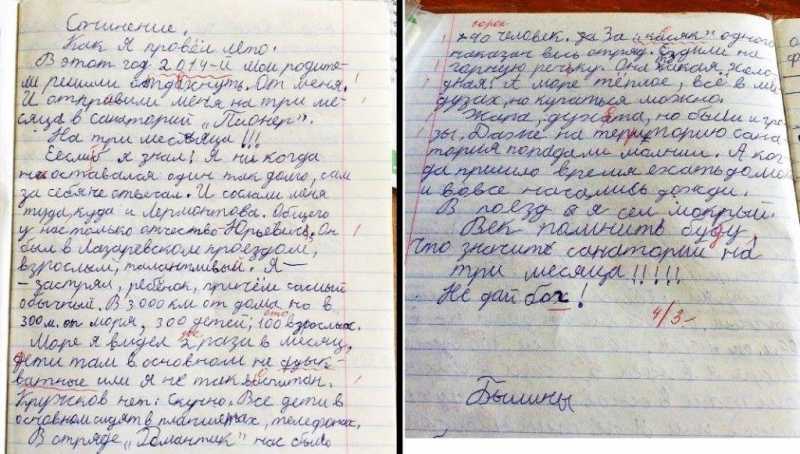 Сочинение.
Как Я провёл лето.
В этот год 2014-й мои родите-
ли решили отдахнуть. От меня.
И отправили меня на три ме-
сяца в санаторий „Пионер".
На три месяца!!!
Еесли б я знал! Я ни когда
на оставался один так долго, сам
за себя не отвечал. И сослали меня
туда, куда и Лермонтова. Общего
у нас только отчество-Юрьевич. Он
был в Лазаревском проездом,
взрослым, талантливый. Я —
– застрял, ребёнок, причём самый
обычный. В 3000 км от дома но в
300 м. от моря, 300 детей, 100 взрослых.
сто
Море я видел 2 раза в месяц,
два
дети там в основном не адык-
ватные или я не так воспитан.
Кружков нет: Скучно. Все дети в
основном сидят в планшетах, телефонах.
В отряде „Романтик" нас было
сорок
40 человек. За За „касяк" одного
наказан весь отряд. Ездили на
горную речку. Она такая холо
дная! А море тёплое, всё в ме
дузах, но купаться можно.
Жара, духота, но были и гро
зы. Даже на территорию сана
тория попадали молнии. А ког
да пришло время ехать домой
и вовсе начались дожди.
В поезд я сел мокрый.
Век помнить буду,
что значить санаторий на
три месяца!!!!!
Не дай бох!
4/3-
Былины